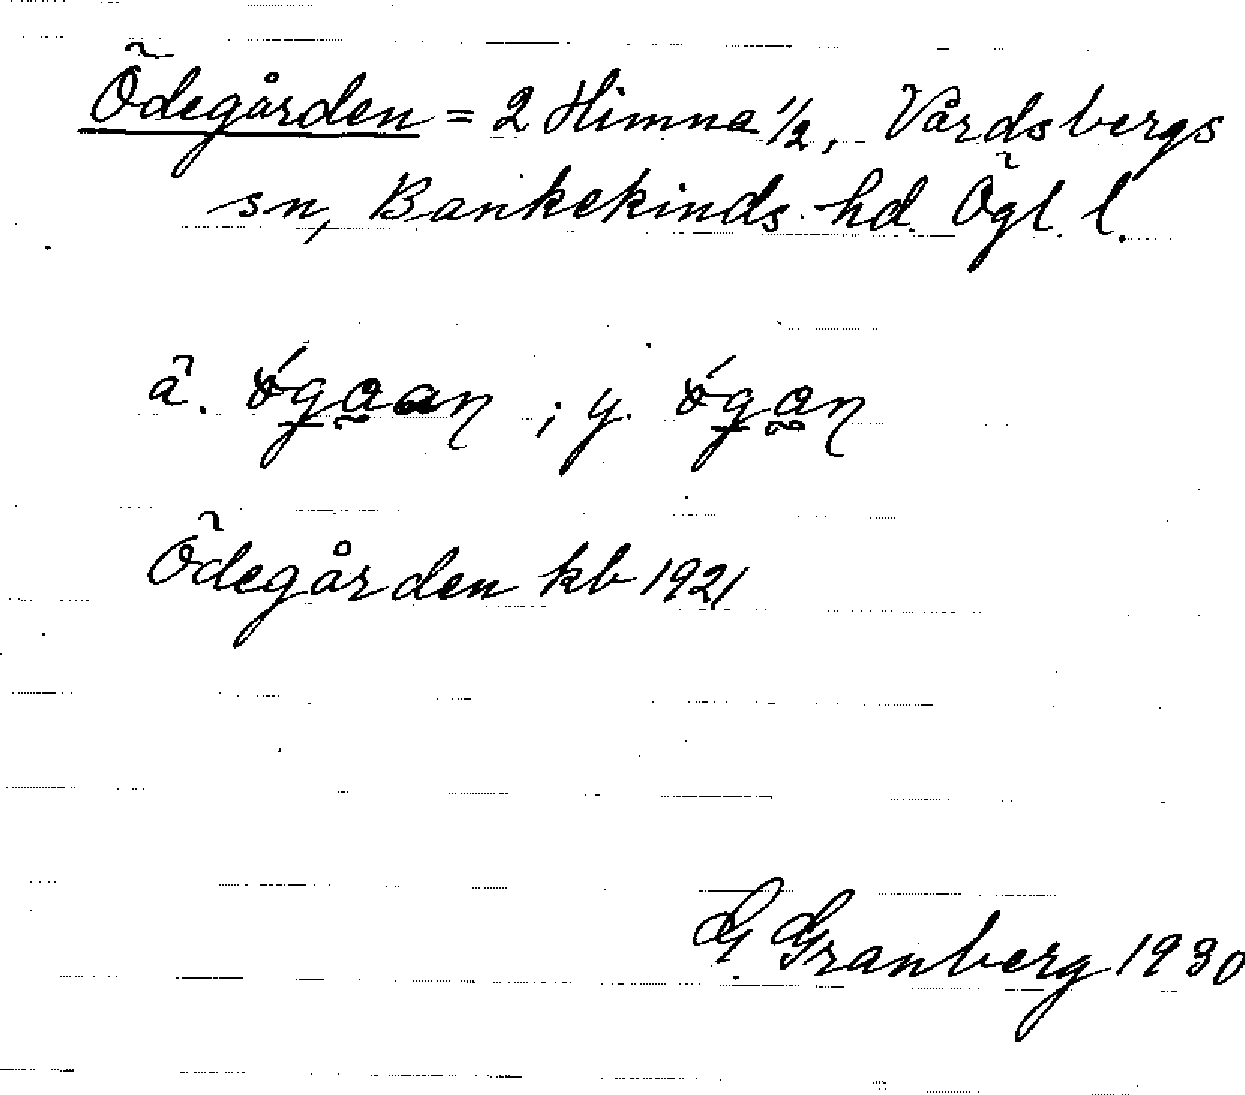 Ödegården = 2 Himna 1/2, Vårdsbergs
sn, Bankekinds hd. Ögl. l.
ä. ; y.
Ödegården kb 1921
G Granberg 1930